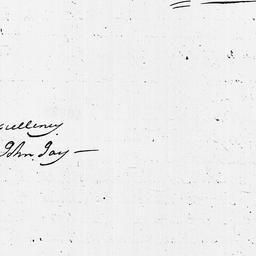 cellency
John Jay —